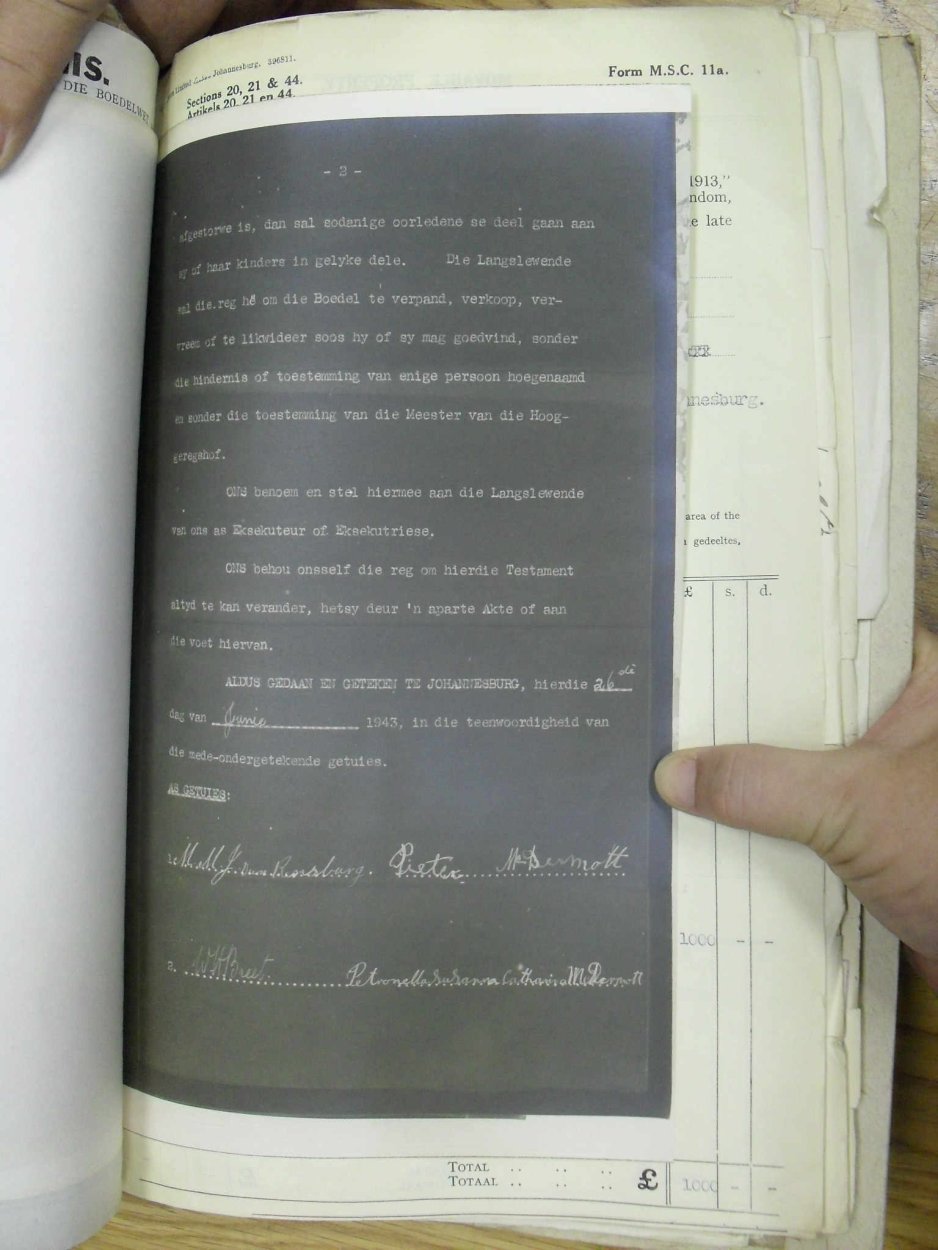 IS.
DIE BOEDELWET
Johannesburg. 396811.
Sections 20, 21 & 44.
Artikels 20, 21 en 44.
Form M.S.C. 11a.
1913,"
ndom,
e late
nesburg.
area of the
gedeeltes,
£ s. d.
1000 - -
- 2 -
afgestorwe is, dan sal sodanige oorledene se deel gaan aan
sy of haar kinders in gelyke dele. Die Langslewende
sal die reg hê om die Boedel te verpand, verkoop, ver-
vreem of te likwideer soos hy of sy mag goedvind, sonder
die hindernis of toestemming van enige persoon hoegenaamd
en sonder die toestemming van die Meester van die Hoog-
geregshof.
ONS benoem en stel hiermee aan die Langslewende
van ons as Eksekuteur of Eksekutriese.
ONS behou onsself die reg om hierdie Testament
altyd te kan verander, hetsy deur 'n aparte Akte of aan
die voet hiervan.
ALDUS GEDAAN EN GETEKEN TE JOHANNESBURG, hierdie 26de
dag van Junie 1943, in die teenwoordigheid van
die mede-ondergetekende getuies.
AS GETUIES:
Pieter McDermott
2. Petronella Susanna Catharina McDermott
TOTAL .. .. ..
TOTAAL .. .. .. £ 1000 - -